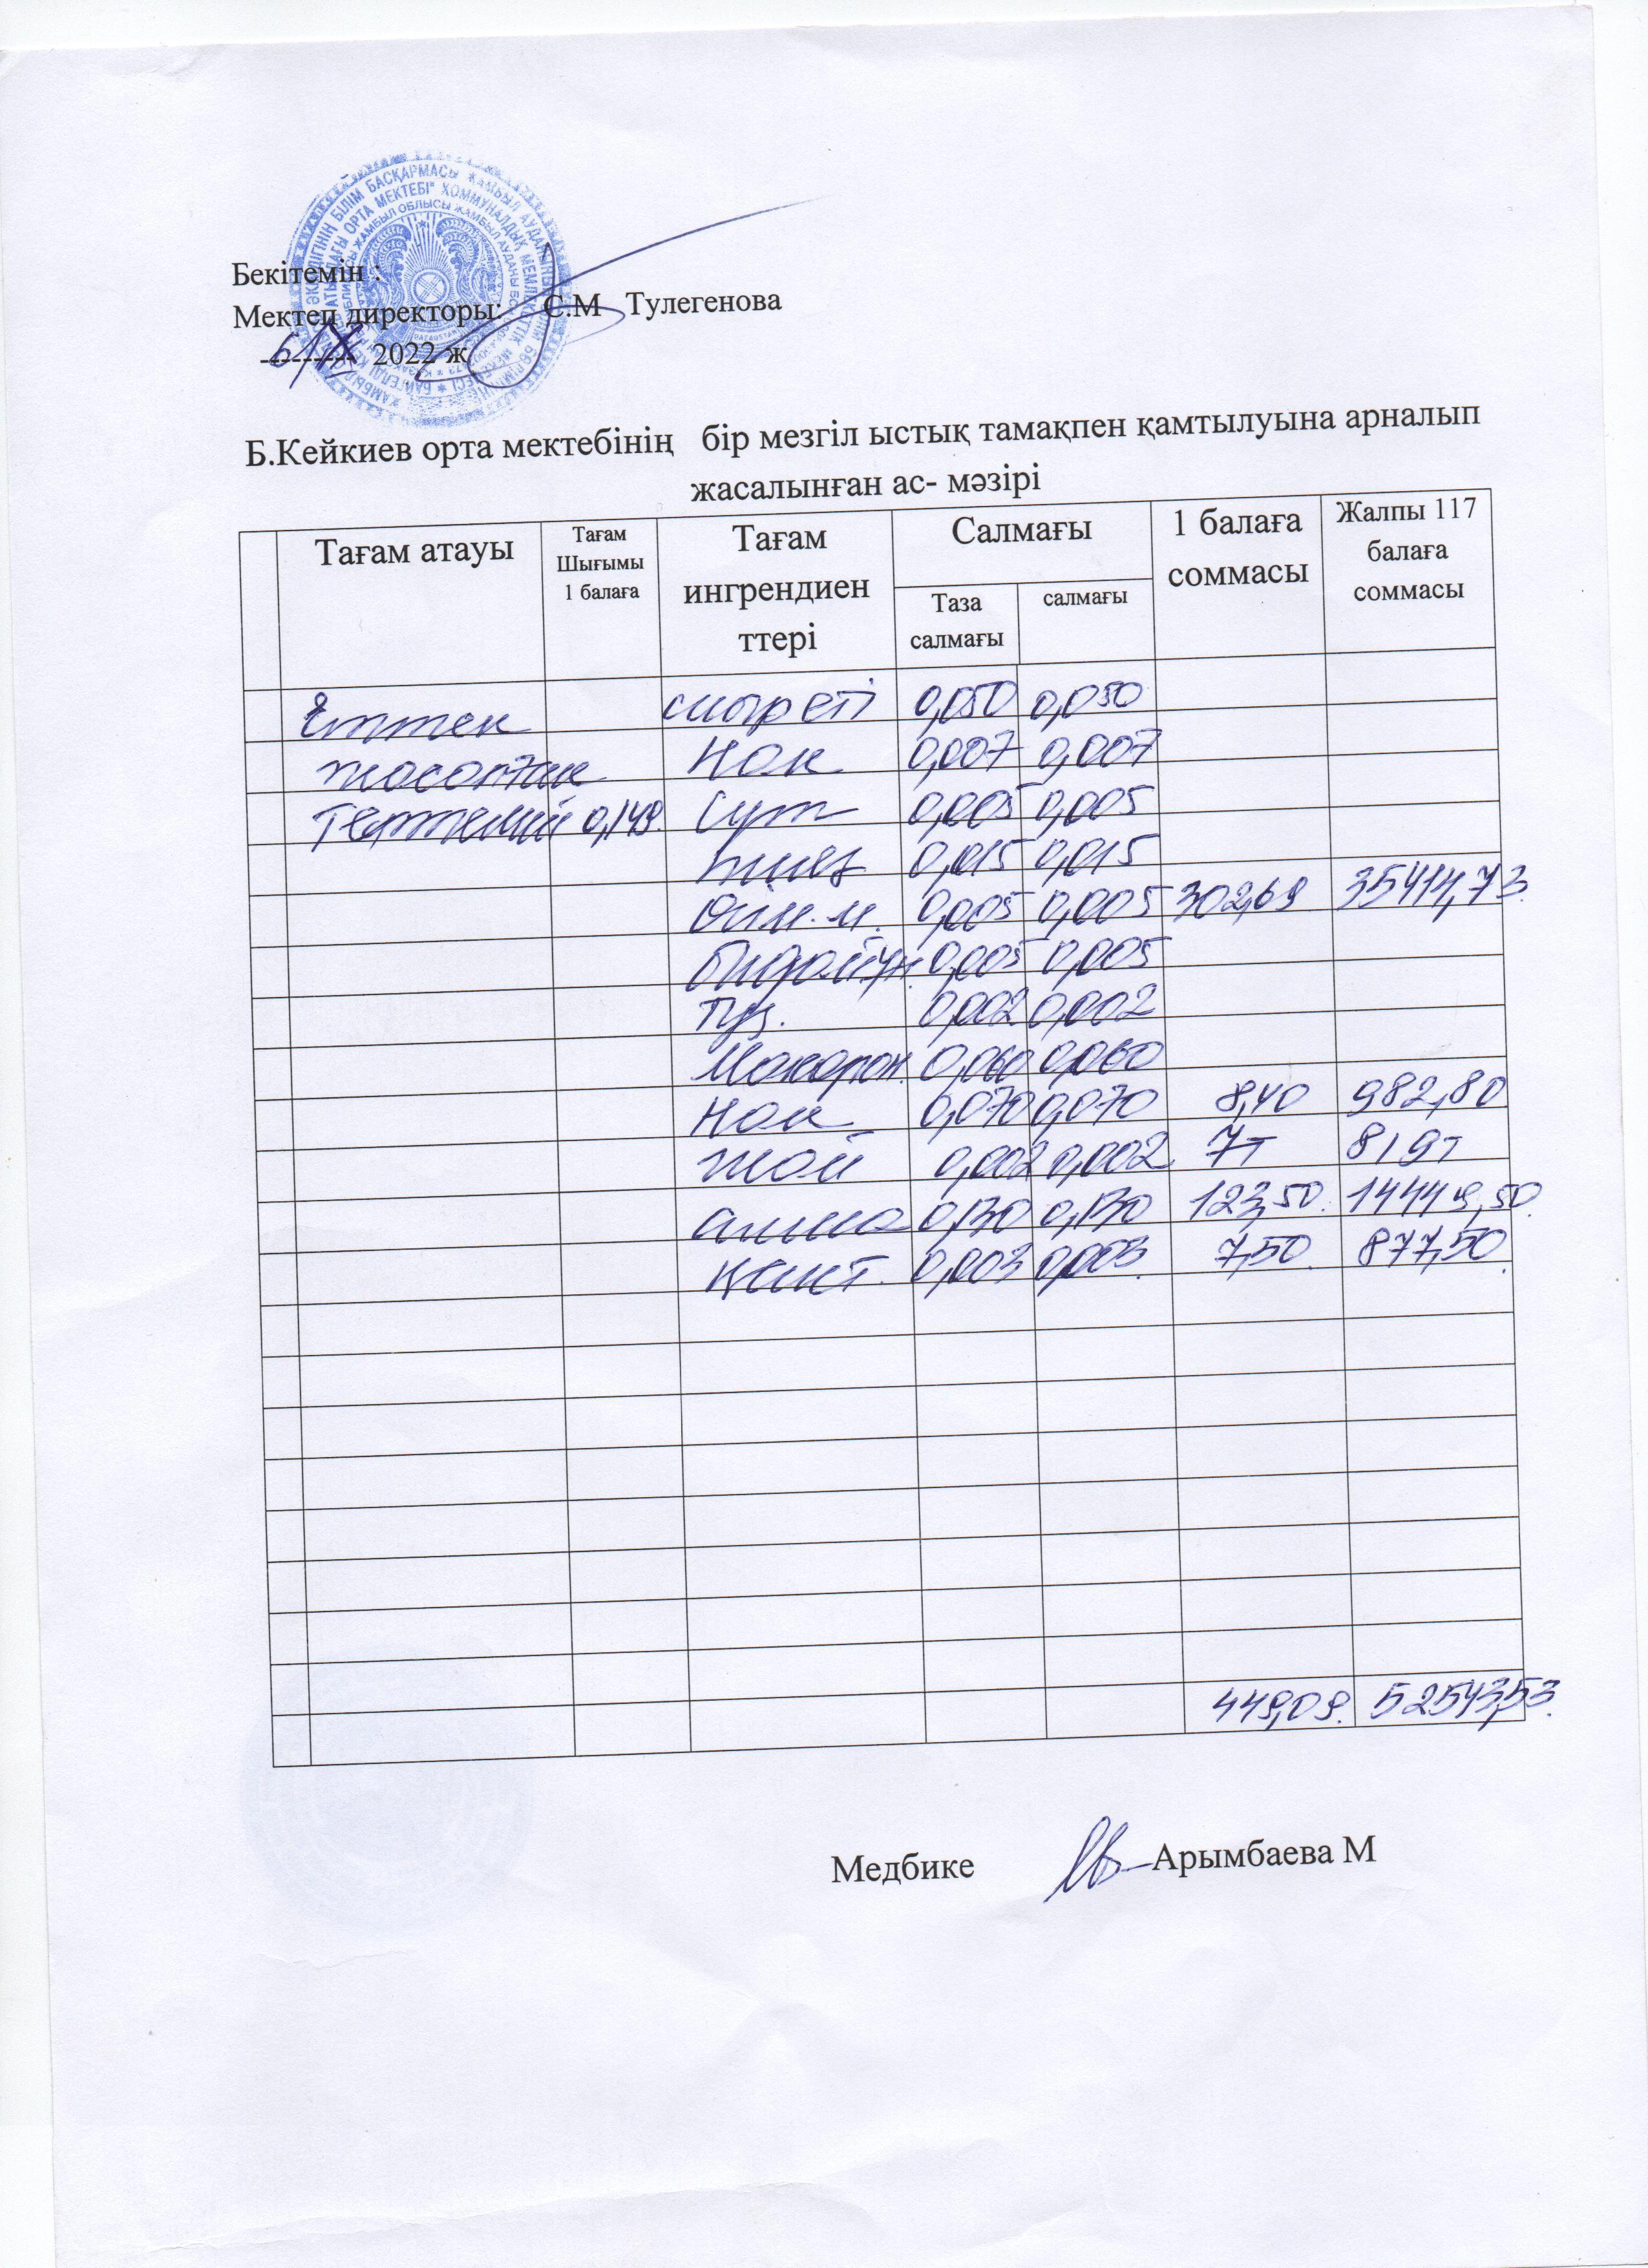 Бекітемін :
Мектеп директоры: С.М Тулегенова
2022 ж
Б.Кейкиев орта мектебінің бір мезгіл ыстық тамақпен қамтылуына арналып
жасалынған ас- мәзірі
Тағам атауы
Тағам
Шығымы
1 балаға
Тағам
ингрендиен
ттері
Салмағы
Таза
салмағы
салмағы
1 балаға
соммасы
Жалпы 117
балаға
соммасы
Еттен сиыр еті 0,050 0,050
жасалған Нан 0,007 0,007
Тефтели 0,149. Сүт 0,005 0,005
пияз 0,015 0,015
Өсім.м. 0,005 0,005 302,69 35414,73.
Бидай ұн. 0,005 0,005
Тұз. 0,002 0,002
Макарон. 0,060 0,060
Нан 0,070 0,070 8,40 982,80
Шай 0,002 0,002 7т 819т
алма 0,130 0,130 123,50. 14449,50.
Қант. 0,003 0,003. 7,50. 877,50.
449,09. 52543,53.
Медбике Арымбаева М